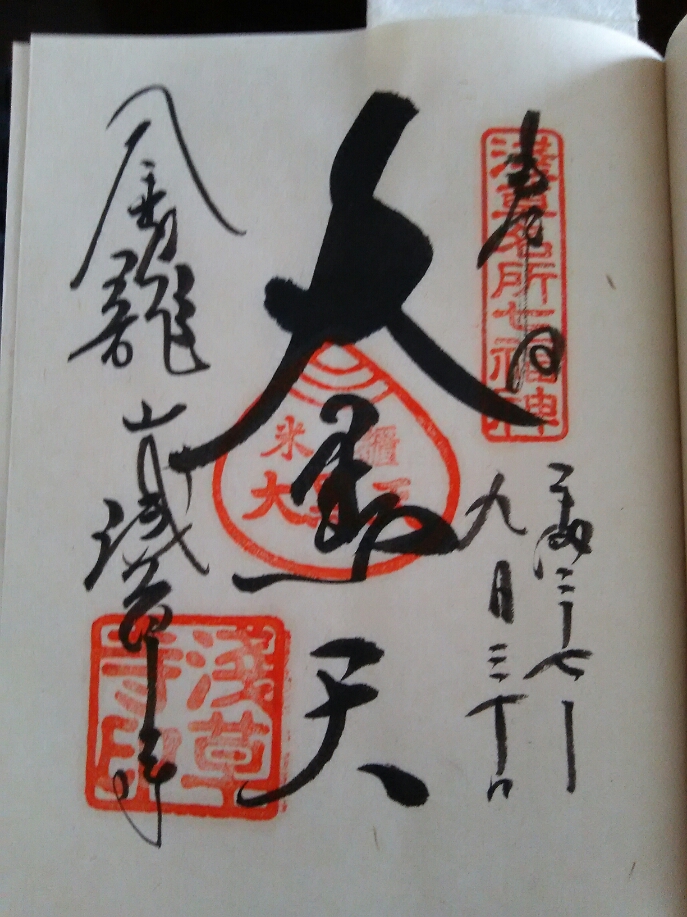 奉拝
淺草名所七福神
平成二十七年
九月三十日
大黒天
米櫃
金龍山淺草寺
淺草寺印